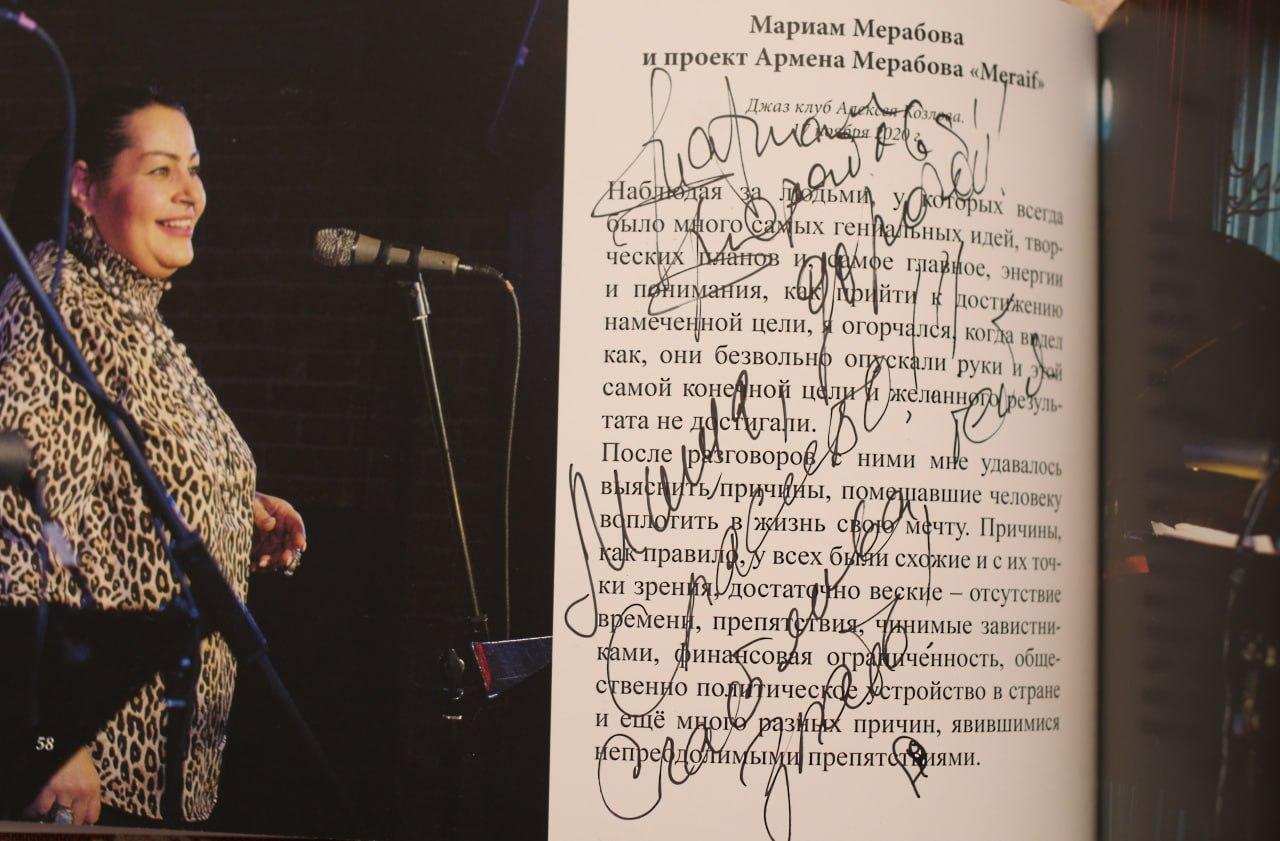 Мариам Мерабова
и проект Армена Мерабова «Meraif»
Джаз клуб Алексея Козлова.
17 ноября 2020 г.
Наблюдая за людьми, у которых всегда
было много самых гениальных идей, твор-
ческих планов и, самое главное, энергии
и понимания, как прийти к достижению
намеченной цели, я огорчался, когда видел
как, они безвольно опускали руки и этой
самой конечной цели и желанного резуль-
тата не достигали.
После разговоров с ними мне удавалось
выяснить причины, помешавшие человеку
воплотить в жизнь свою мечту. Причины,
как правило, у всех были схожие и с их точ-
ки зрения, достаточно веские – отсутствие
времени, препятствия, чинимые завистни-
ками, финансовая ограниченность, обще-
ственно политическое устройство в стране
и ещё много разных причин, явившимися
непреодолимыми препятствиями.
58